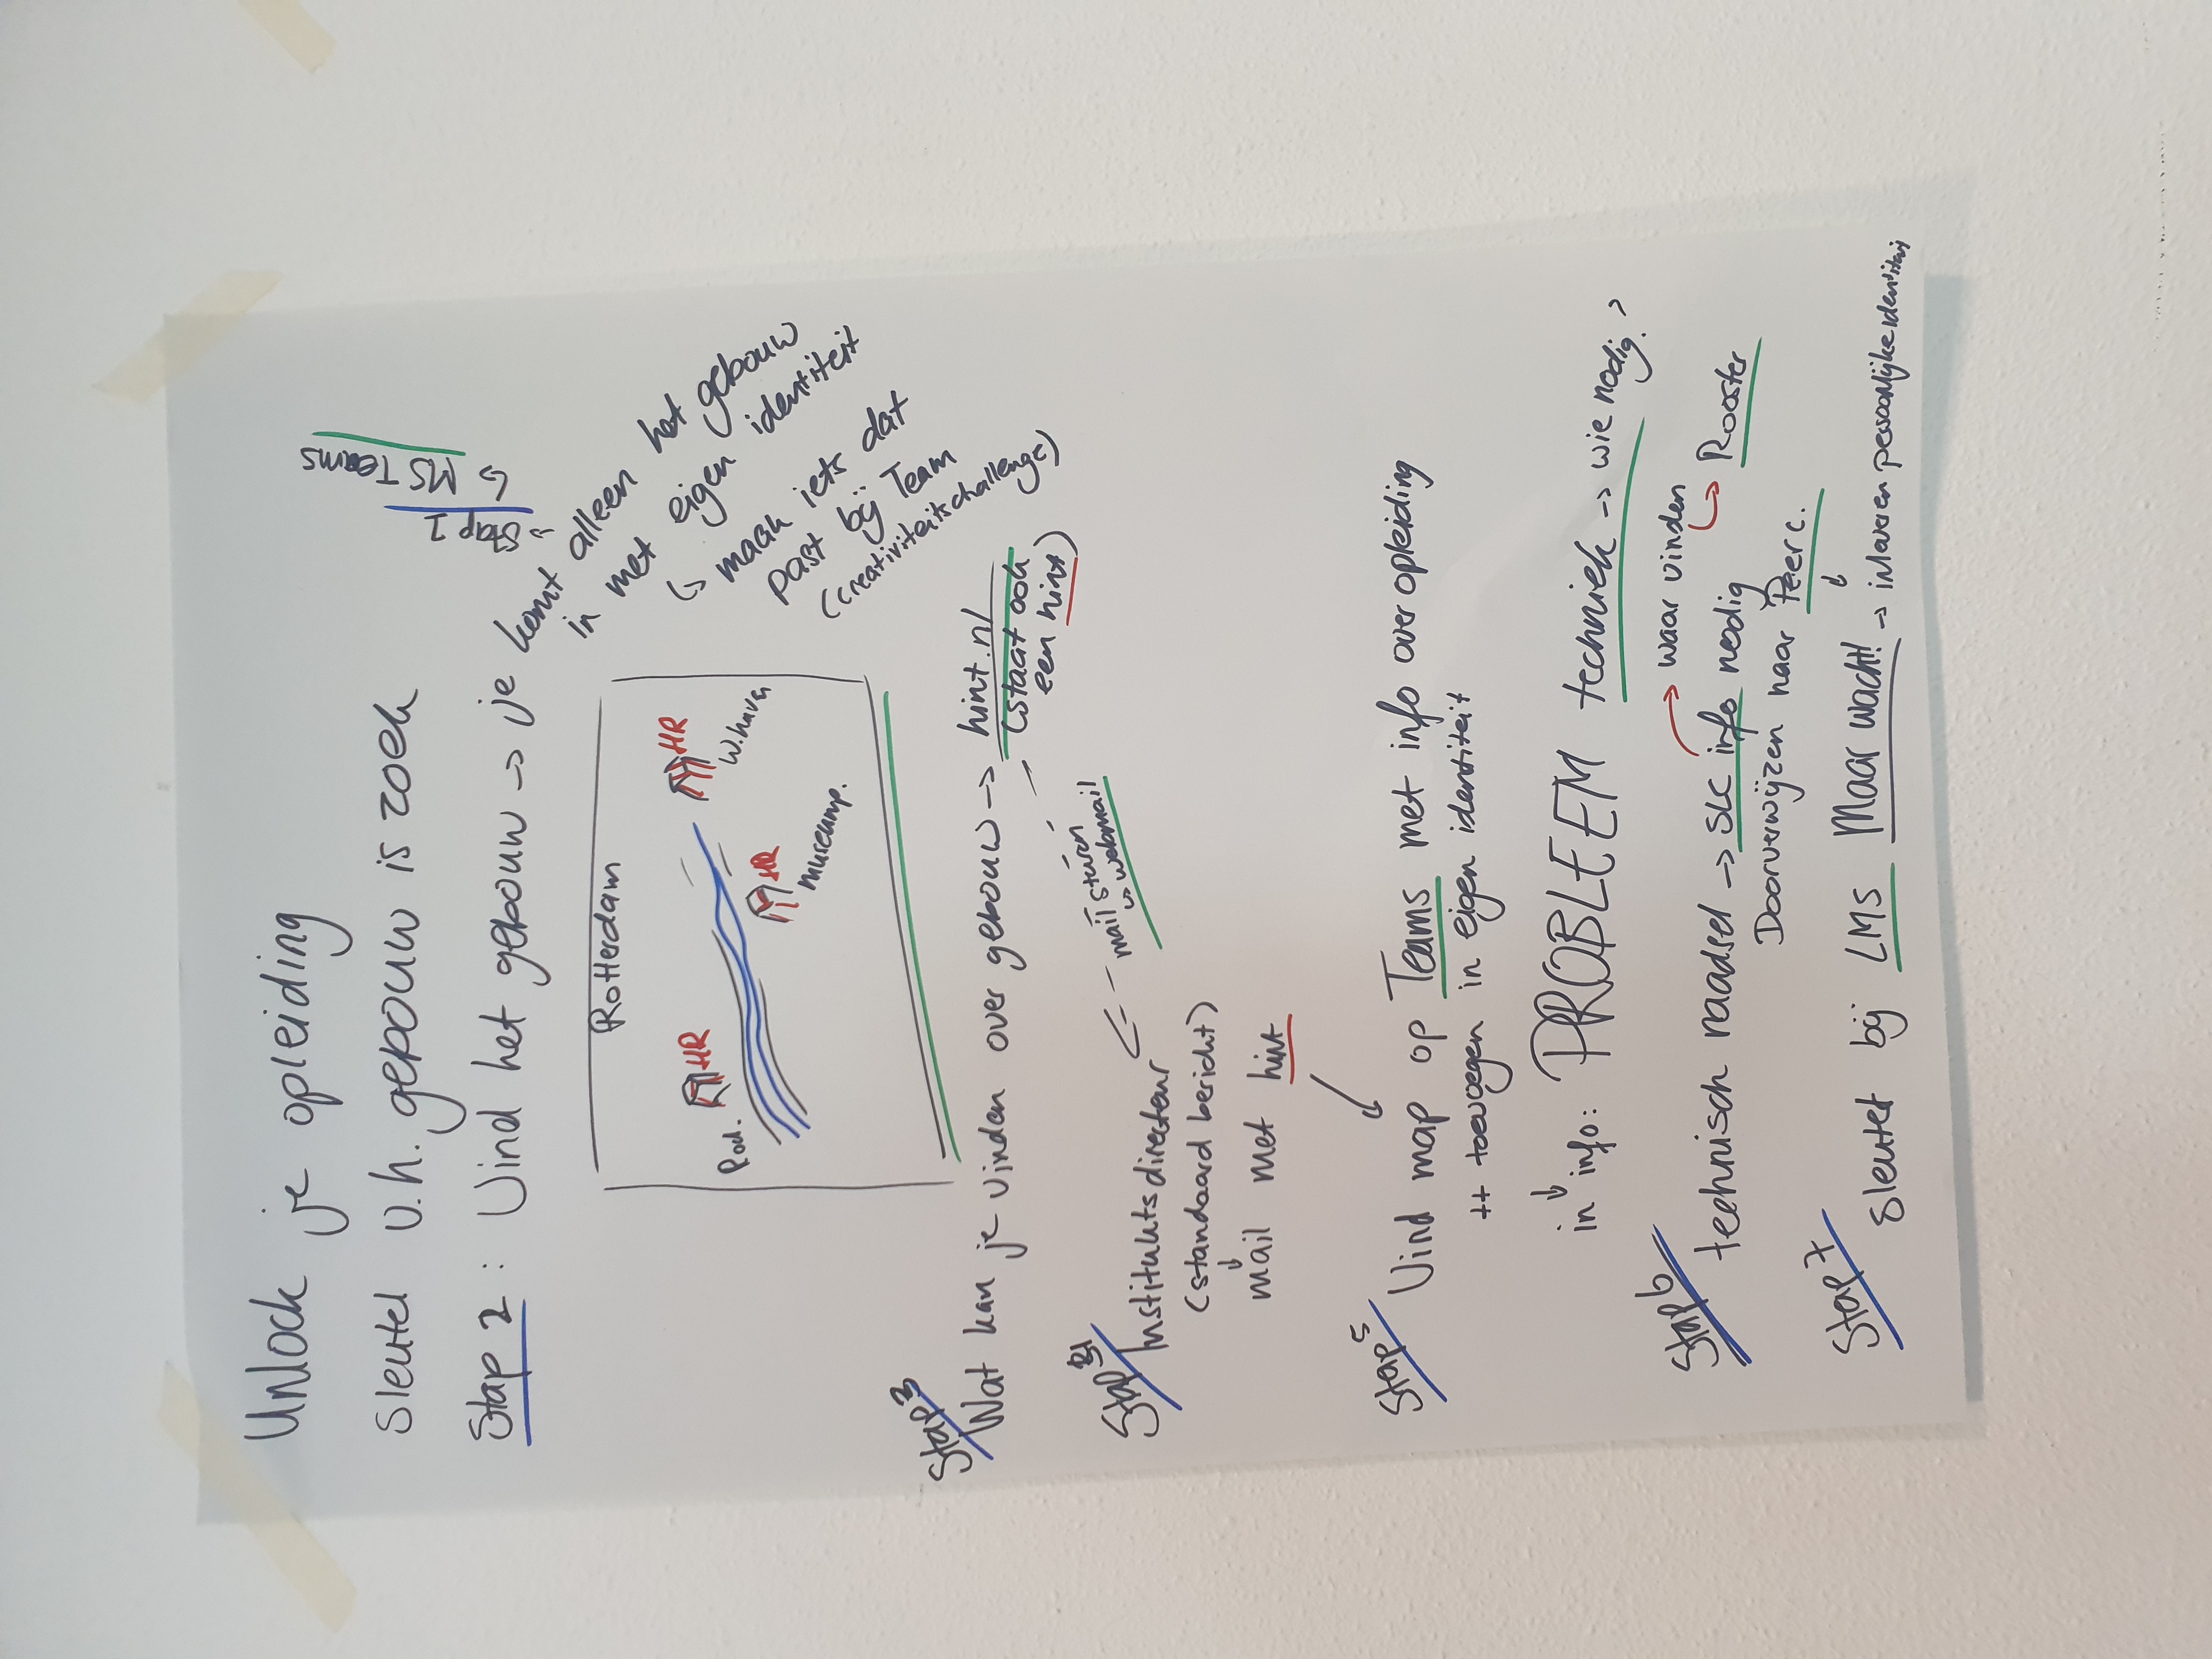 Unlock je opleiding
Sleutel v.h. gebouw is zoek
Stap 2 : Vind het gebouw -> je komt alleen het gebouw
in met eigen identiteit
-> Stap 1
↳ MS Teams
↳ maak iets dat
past bij Team
(creativiteitschallenge)
Rotterdam
HR
HR
Rod.
W.haven
HR
museump.
Stap 3
Wat kan je vinden over gebouw -> hint.nl
(staat ook
een hint)
mail sturen
↳ webmail
Stap
Instituutsdirecteur
(standaard bericht)
↓
mail met hint
Stap 5
Vind map op Teams met info over opleiding
++ toevoegen in eigen identiteit
↓
in info: PROBLEEM techniek -> wie nodig?
Stap 6
waar vinden
technisch raadsel -> SLC info nodig
Rooster
Doorverwijzen naar Peer c.
↓
Stap 7
Sleutel bij LMS Maar wacht! -> inleveren persoonlijke identiteit